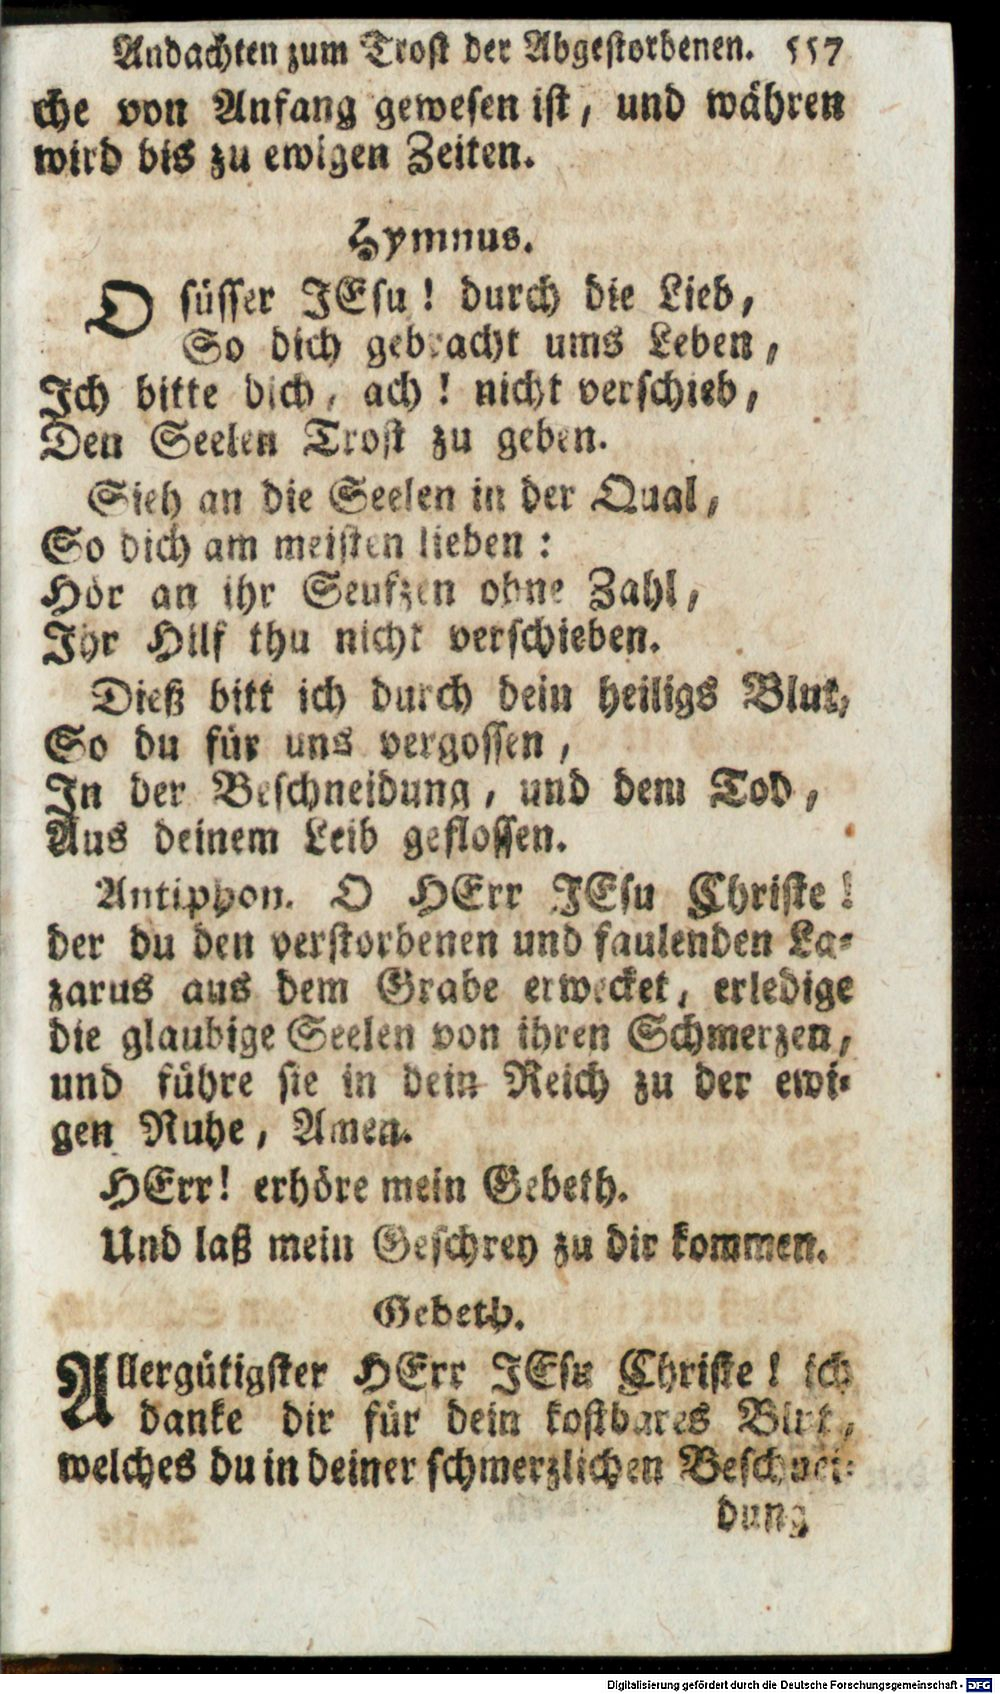 Andachten zum Trost der Abgestorbenen. 557
che von Anfang gewesen ist, und währen
wird bis zu ewigen Zeiten.
Hymnus.
O süsser JEsu! durch die Lieb,
So dich gebracht ums Leben,
Ich bitte dich, ach! nicht verschieb,
Den Seelen Trost zu geben.
Sieh an die Seelen in der Qual,
So dich am meisten lieben:
Hör an ihr Seufzen ohne Zahl,
Ihr Hilf thu nicht verschieben.
Dieß bitt ich durch dein heiligs Blut,
So du für uns vergossen,
In der Beschneidung, und dem Tod,
Aus deinem Leib geflossen.
Antiphon. O HErr JEsu Christe!
der du den verstorbenen und faulenden La-
zarus aus dem Grabe erwecket, erledige
die glaubige Seelen von ihren Schmerzen,
und führe sie in dein Reich zu der ewi-
gen Ruhe, Amen.
HErr! erhöre mein Gebeth.
Und laß mein Geschrey zu dir kommen.
Gebeth.
Allergütigster HErr JEsu Christe! ich
danke dir für dein kostbares Blut,
welches du in deiner schmerzlichen Beschnei-
dung
Digitalisierung gefördert durch die Deutsche Forschungsgemeinschaft - DFG